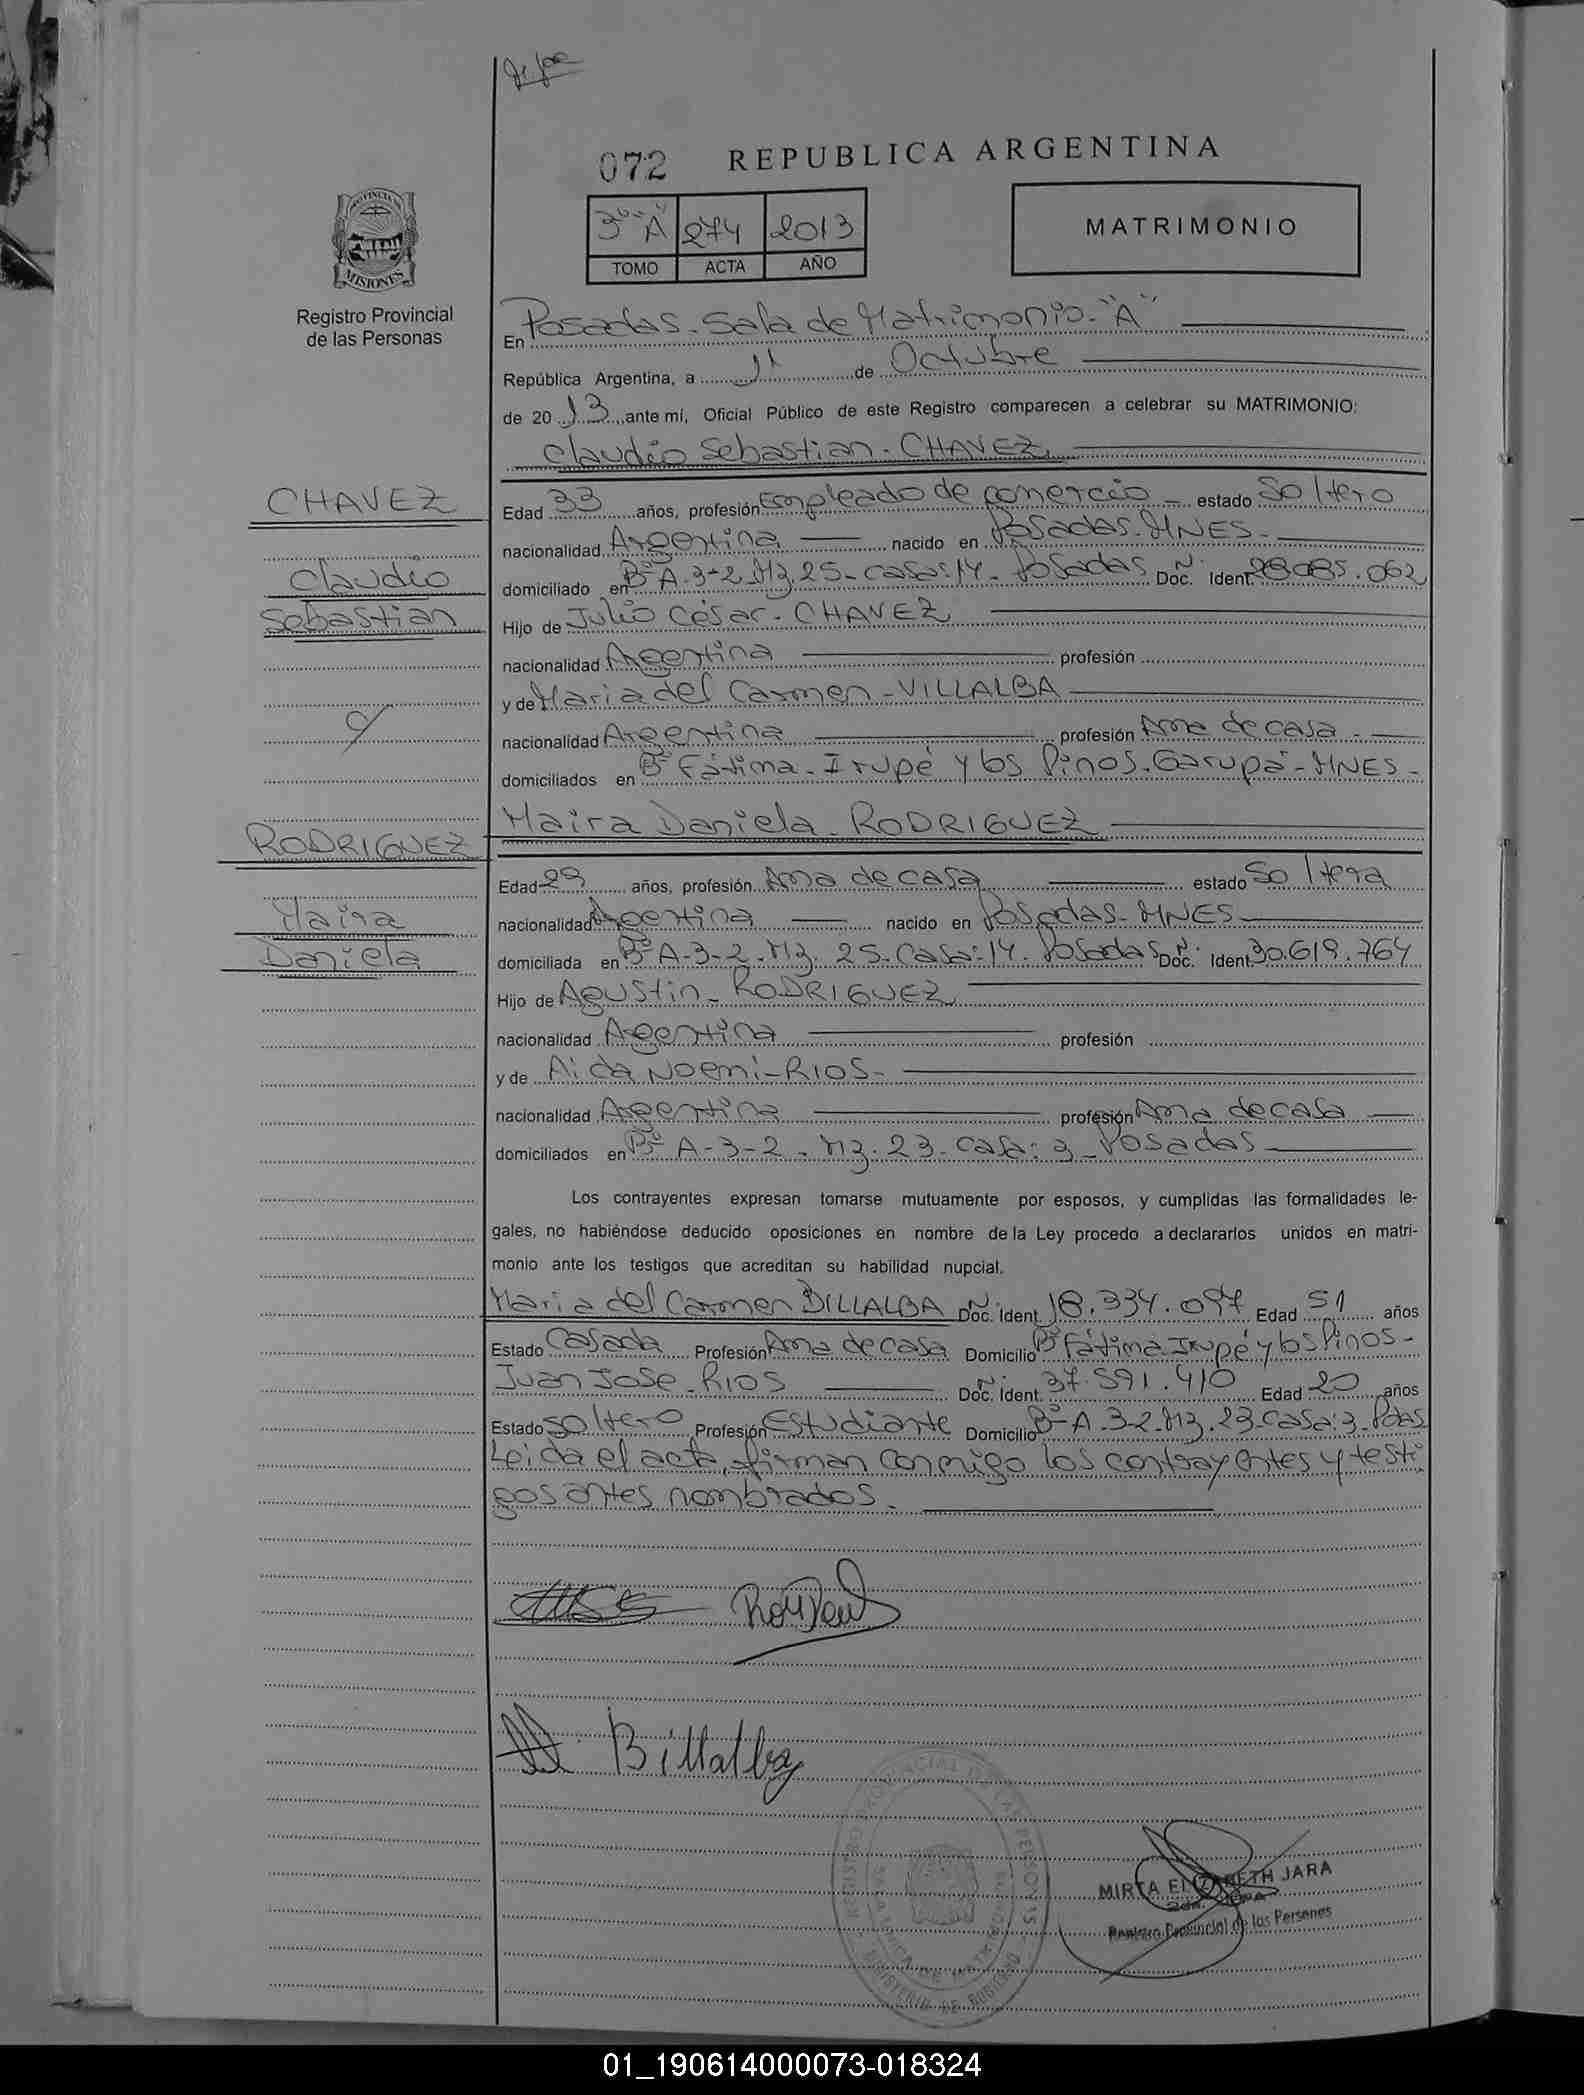 072 REPUBLICA ARGENTINA
3º "A" 274 2013
TOMO ACTA AÑO
MATRIMONIO
PROVINCIA DE
MISIONES
Registro Provincial
de las Personas
En Posadas - Sala de Matrimonio - "A"
República Argentina, a 11 de Octubre
de 2013 ante mí, Oficial Público de este Registro comparecen a celebrar su MATRIMONIO:
Claudio Sebastian - CHAVEZ
CHAVEZ
Edad 33 años, profesión Empleado de comercio - estado Soltero
nacionalidad Argentina nacido en Posadas. MNES -
Claudio
domiciliado en Bº A-3-2 Mz 25 - Casa: 14 - Posadas Doc. Nº Ident. 28.085.062
Sebastian
Hijo de Julio César - CHAVEZ
nacionalidad Argentina profesión
y de Maria del Carmen - VILLALBA
nacionalidad Argentina profesión Ama de casa -
domiciliados en Bº Fátima - Irupé y los Pinos - Garupá - MNES -
Maira Daniela - RODRIGUEZ
RODRIGUEZ
Edad 29 años, profesión Ama de casa estado Soltera
Maira
nacionalidad Argentina nacido en Posadas - MNES
Daniela
domiciliada en Bº A-3-2 - Mz. 25 - Casa: 14 - Posadas Doc. Nº Ident. 30.619.764
Hijo de Agustin - RODRIGUEZ
nacionalidad Argentina profesión
y de Aida Noemi - RIOS -
nacionalidad Argentina profesión Ama de casa
domiciliados en Bº A-3-2 - Mz. 23 - Casa: 3 - Posadas
Los contrayentes expresan tomarse mutuamente por esposos, y cumplidas las formalidades le-
gales, no habiéndose deducido oposiciones en nombre de la Ley procedo a declararlos unidos en matri-
monio ante los testigos que acreditan su habilidad nupcial.
Maria del Carmen BILLALBA Doc. Nº Ident. 18.334.097 Edad 51 años
Estado Casada Profesión Ama de casa Domicilio Bº Fátima Irupé y los Pinos -
Juan Jose - Rios Doc. Nº Ident. 37.591.410 Edad 20 años
Estado soltero Profesión Estudiante Domicilio Bº A-3-2 - Mz. 23 - Casa: 3 - Pdas
Leida el acta, firman conmigo los contrayentes y testi
gos antes nombrados.
Billalba
REGISTRO PROVINCIAL DE LAS PERSONAS
MINISTERIO DE GOBIERNO
MIRTA ELIZABETH JARA
Registro Provincial de las Personas
01_190614000073-018324